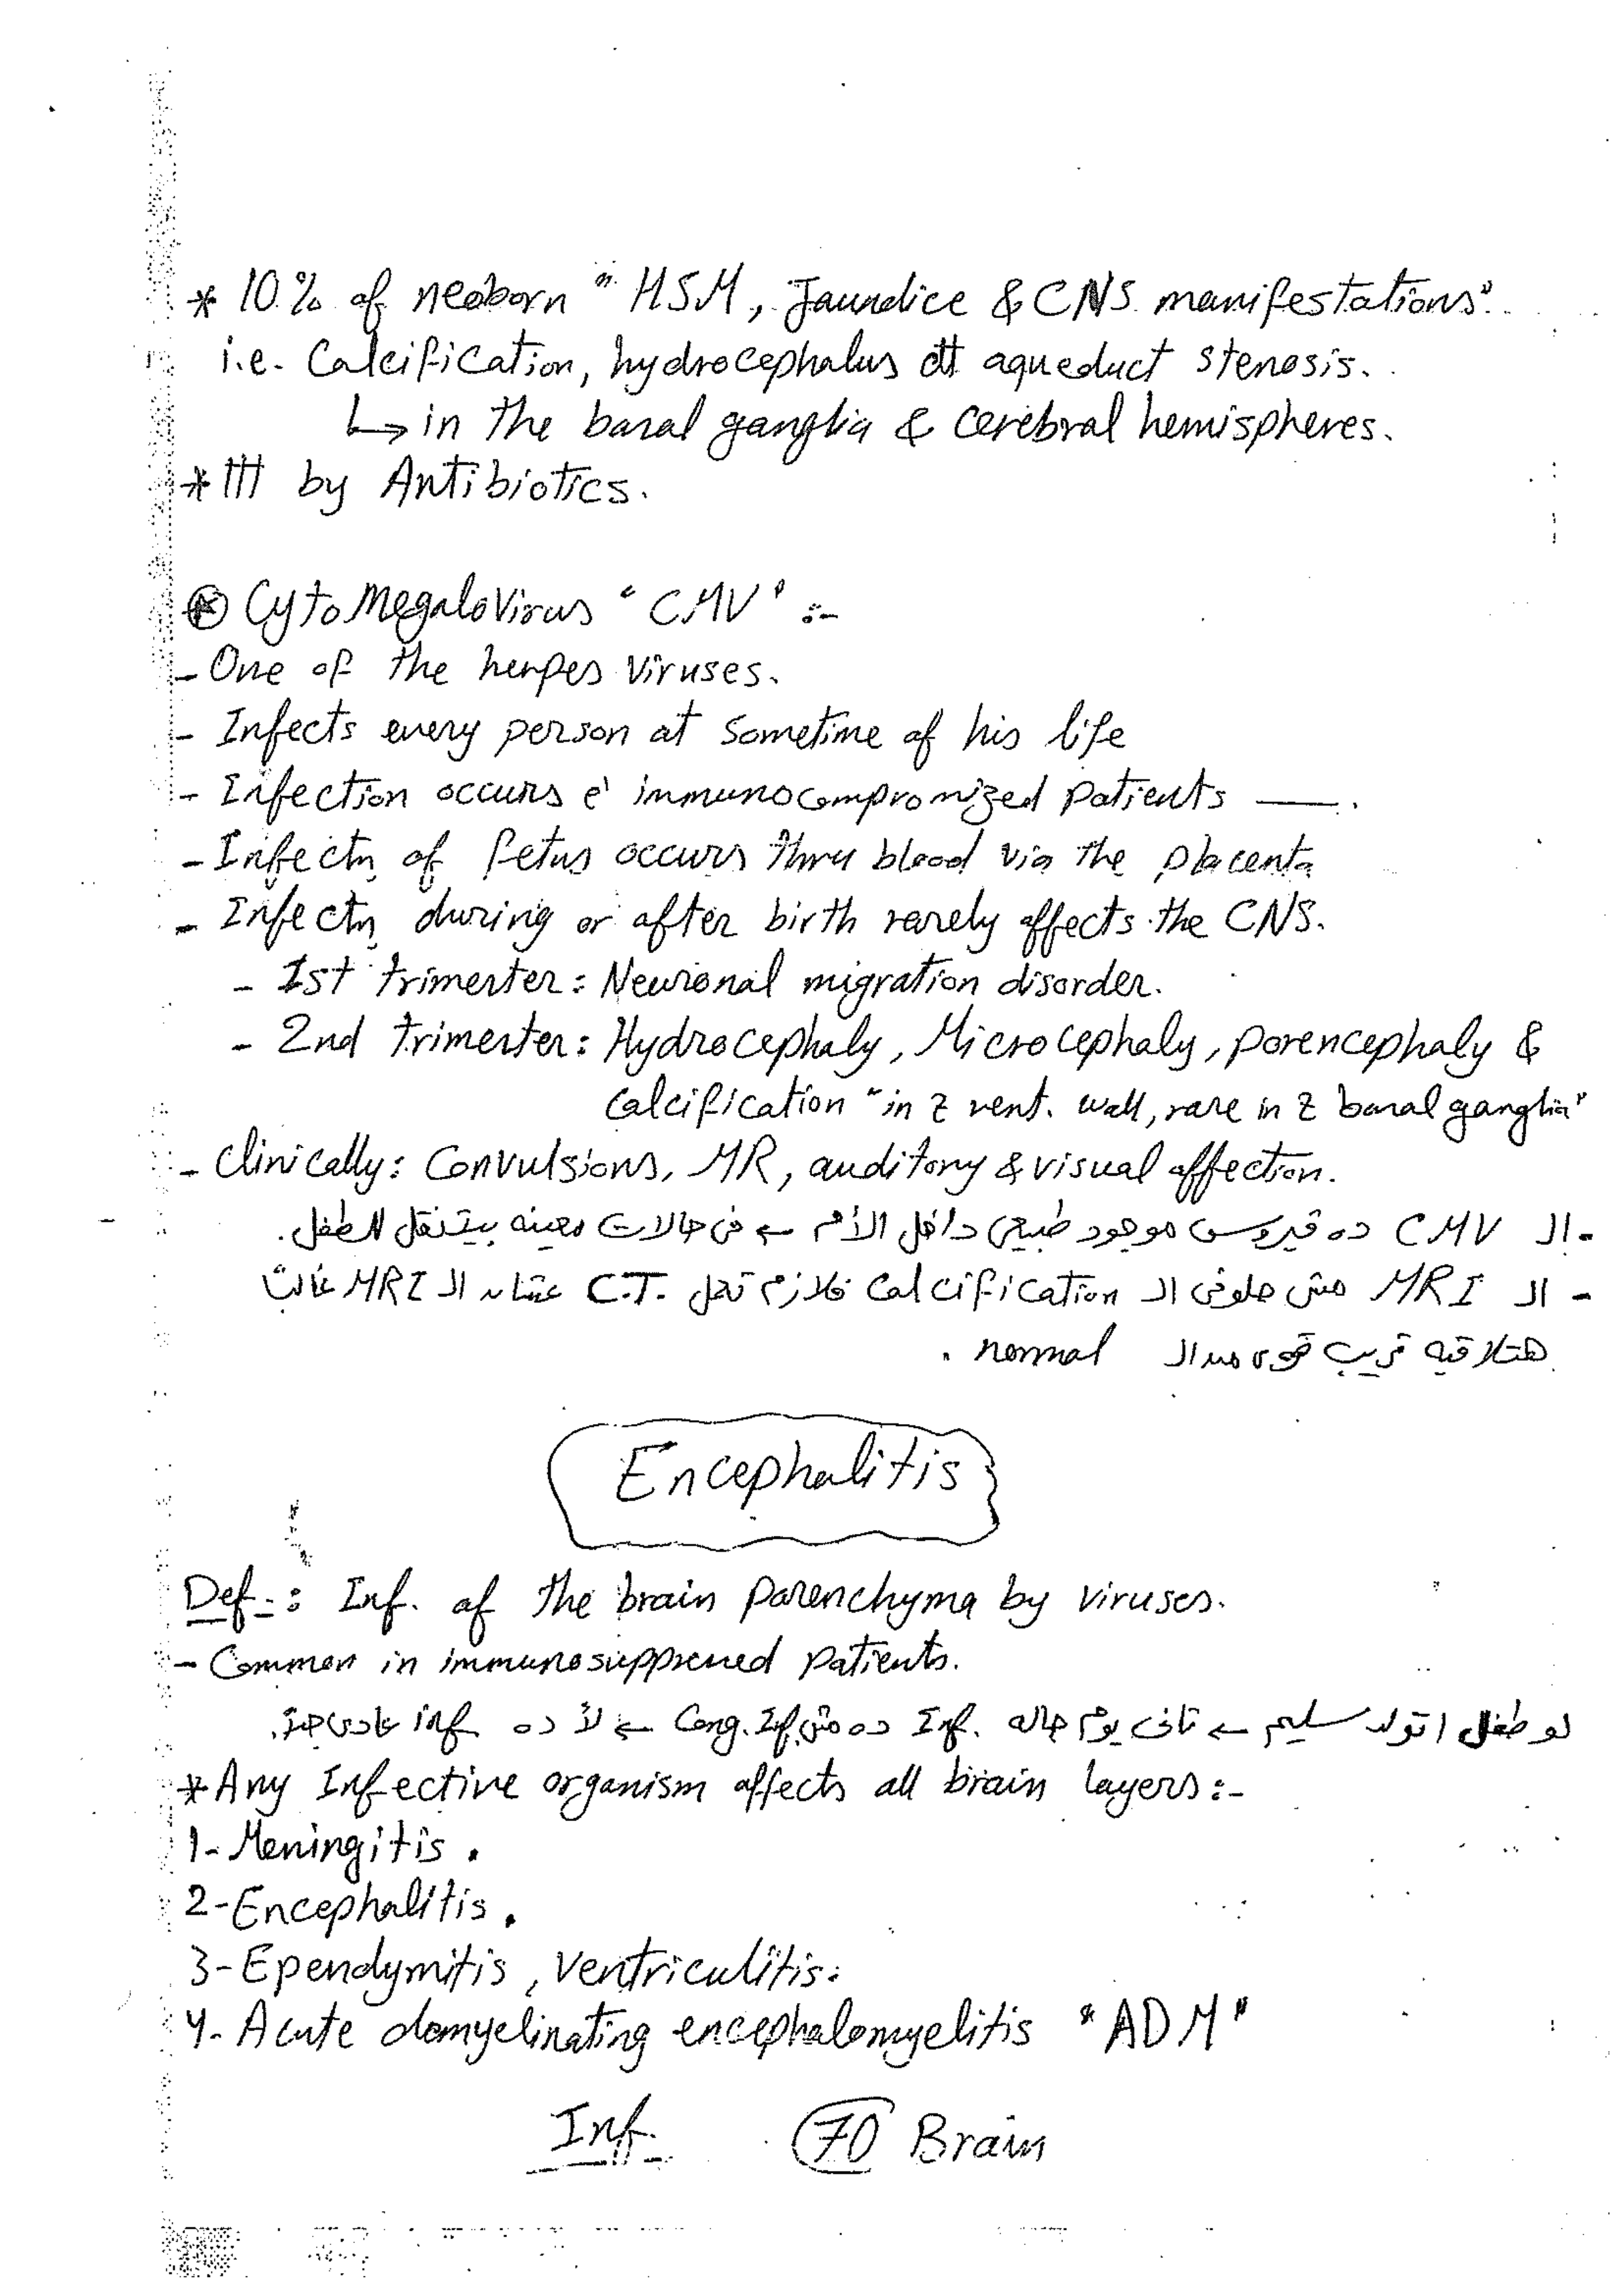 * 10% of neoborn "HSM, Jaundice & CNS manifestations".
i.e. Calcification, hydrocephalus dt aqueduct stenosis.
↳ in the basal ganglia & cerebral hemispheres.
* ttt by Antibiotics.
⊛ CytoMegaloVirus "CMV" :-
- One of the herpes viruses.
- Infects every person at sometime of his life
- Infection occurs e' immunocompromized patients —.
- Infectn of fetus occurs thru blood via the placenta
- Infectn during or after birth rarely affects the CNS.
- 1st trimester: Neuronal migration disorder.
- 2nd trimester: Hydrocephaly, Microcephaly, porencephaly &
Calcification "in z vent. wall, rare in z basal ganglia"
- Clinically: Convulsions, MR, auditory & visual affection.
- الـ CMV ده فيروس موجود طبيعي داخل الأم ← في حالات معينه بيتنقل للطفل.
- الـ MRI مش حلو في الـ Calcification فلازم تعمل C.T. عشان الـ MRI غالباً
هتلاقيه قريب قوى من الـ normal .
Encephalitis
Def-: Inf. of the brain parenchyma by viruses.
- Common in immunosuppressed patients.
لو طفل اتولد سليم ← تانى يوم جاله Inf. ده مش Cong. Inf ← لأ ده inf عادى جداً.
* Any Infective organism affects all brain layers:-
1- Meningitis.
2- Encephalitis.
3- Ependymitis, ventriculitis.
4- Acute demyelinating encephalomyelitis "ADM"
Inf. 70 Brain